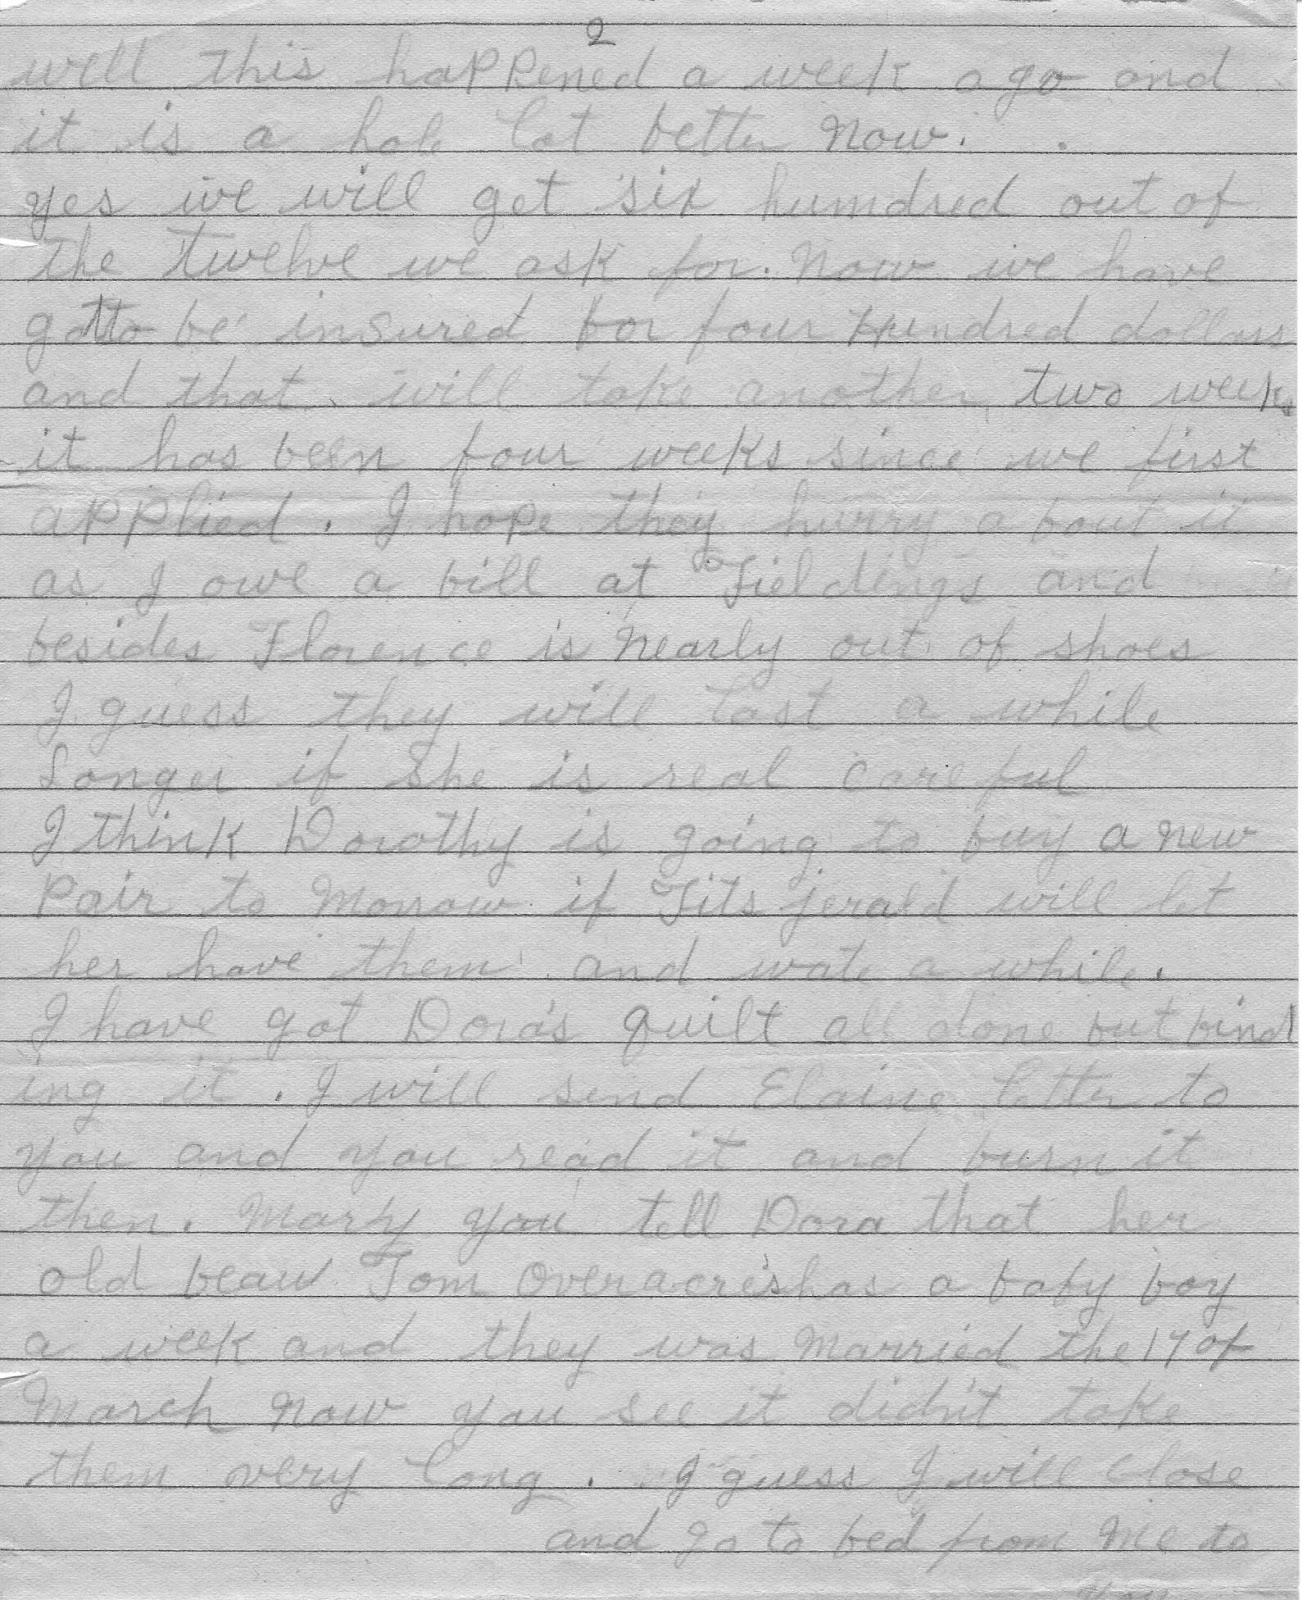 2
well this happened a week ago and
it is a hole lot better now.
yes we will get six humdred out of
the twelve we ask for. now we have
gotto be insured for four Hundred dollars
and that will take another two weeks
it has been four weeks since we first
applied. I hope they hurry a bout it
as I owe a bill at Fieldings and
besides Florence is nearly out of shoes
I guess they will last a while
Longer if she is real careful
I think Dorothy is going to buy a new
Pair to Morrow if Fits jerald will let
her have them and wate a while.
I have got Dora's quilt all done but bind
ing it. I will send Elaine letter to
you and you read it and burn it
then. Mary you tell Dora that her
old beau Tom Overacres has a baby boy
a week and they was Married the 17 of
March now you see it didn't take
them very long. I guess I will close
and go to bed from Me to
you